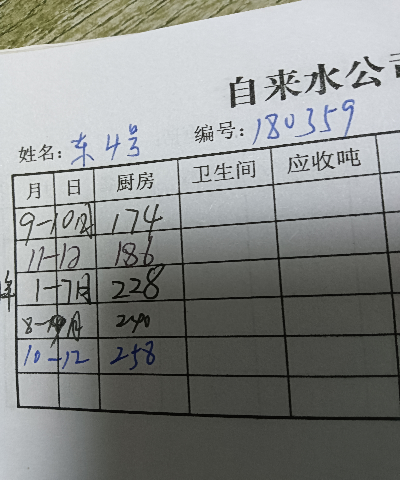 自来水公司
姓名: 东4号 编号: 180359
月 日 厨房 卫生间 应收吨
9-10月 174
11-12 186
年 1-7月 228
8-9月 240
10-12 258